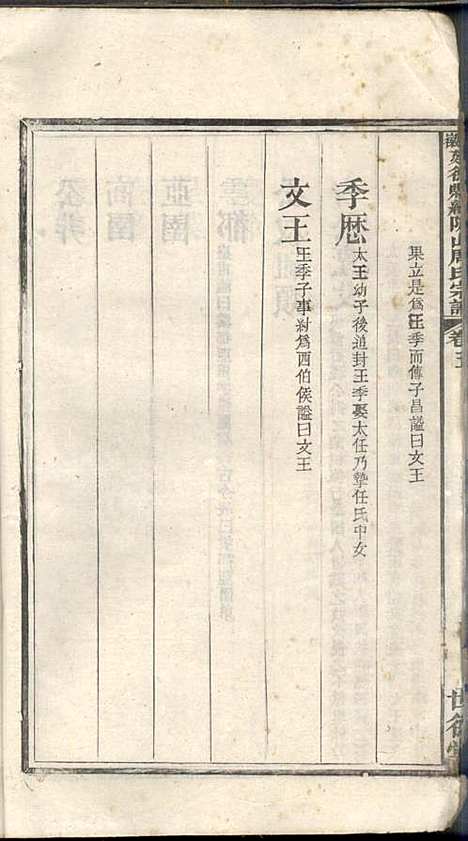 果立是爲王季而傳子昌謚曰文王
季歷 太王幼子後追封王季娶太任乃摯任氏中女
文王 王季子事紂爲西伯侯謚曰文王
山周氏宗譜 卷五
世德堂